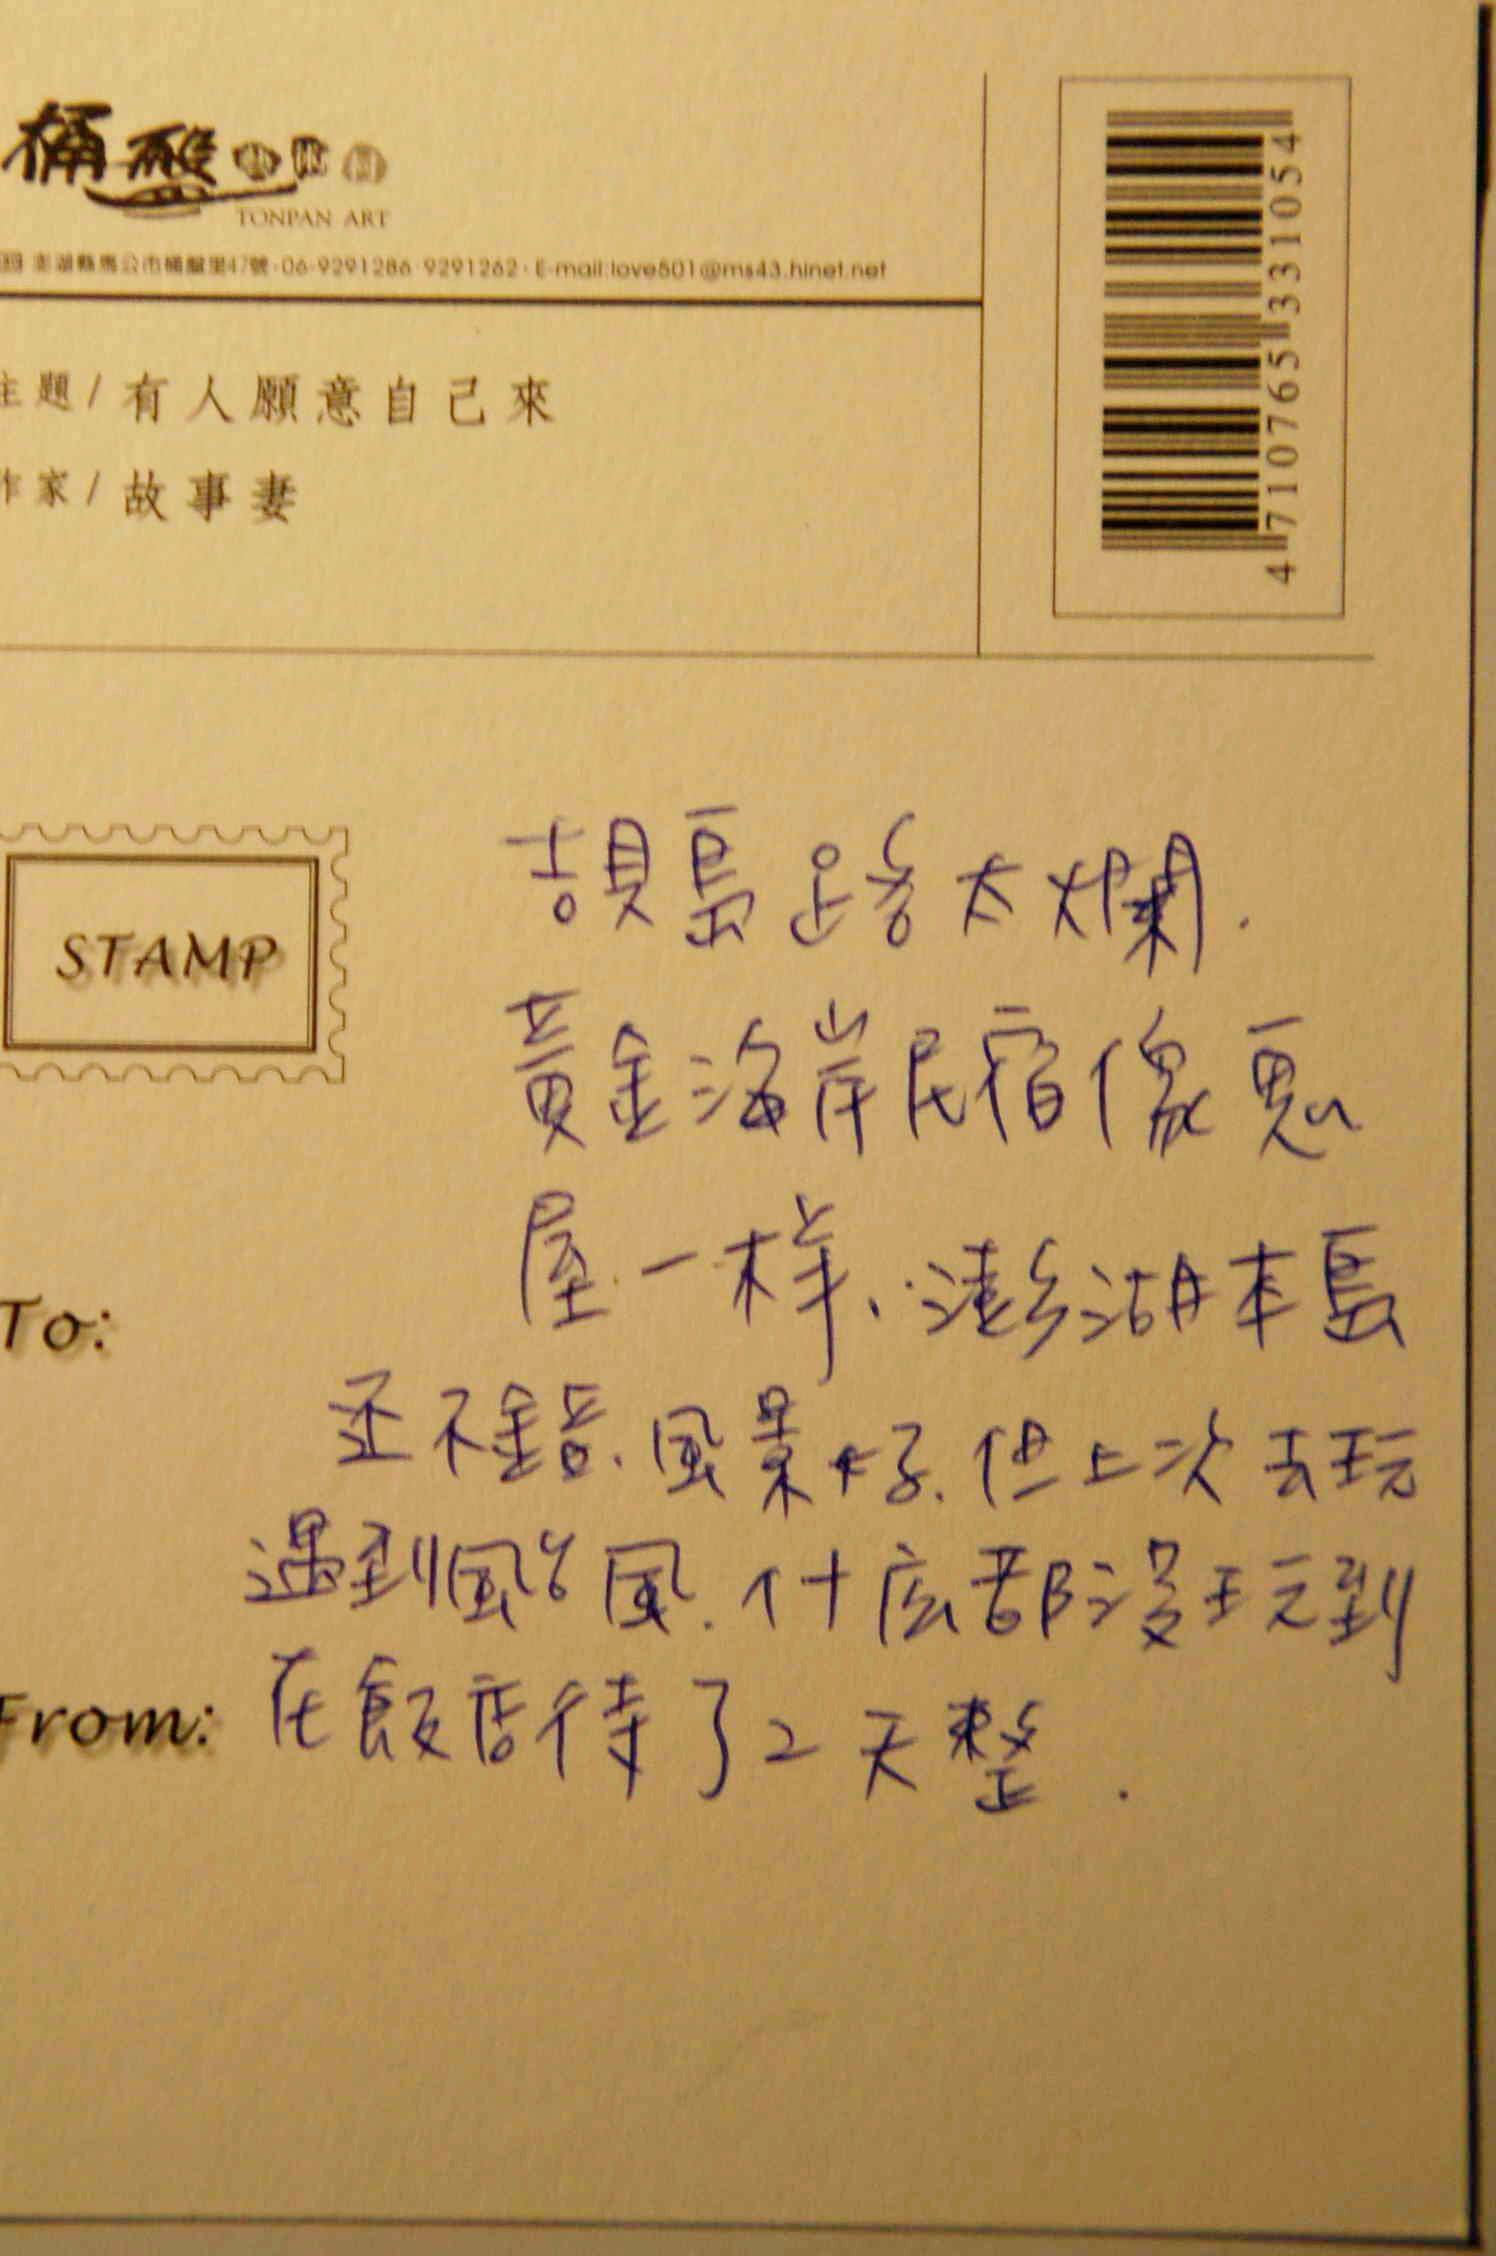 桶盤
TONPAN ART
澎湖縣馬公市桶盤里47號·06-9291286 9291262·E-mail:love501@ms43.hinet.net
主題/有人願意自己來
作家/故事妻
4710765331054
STAMP
吉貝島路太爛.
黃金海岸民宿像鬼
屋一样、澎湖本島
To:
还不錯.風景好.但上次去玩
遇到颱風.什庅都沒玩到
From:
在飯店待了2天整.